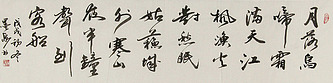 月落烏
啼霜
滿天江
楓漁火
對愁眠
姑蘇城
外寒山
夜半鐘
聲到
客船
戊戌冬